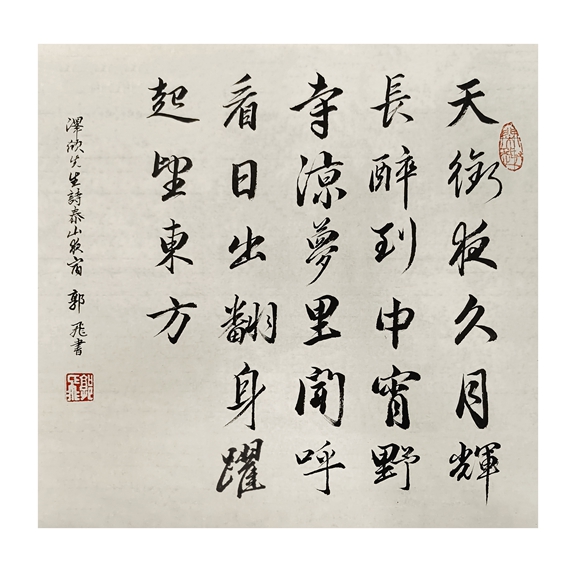 天衢夜久月輝
長醉到中宵野
寺涼夢里聞呼
看日出翻身躍
起望東方
澤欣先生詩泰山夜宿 郭飛書